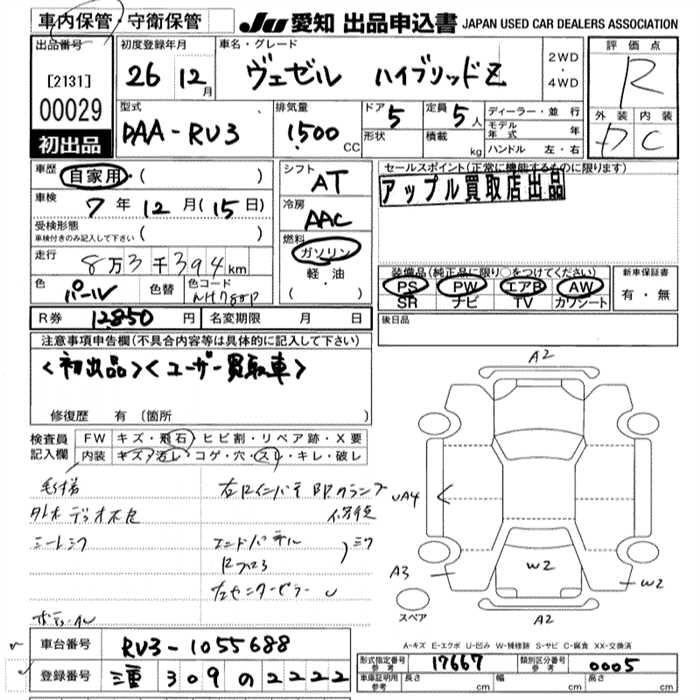 車内保管・守衛保管
JU 愛知 出品申込書 JAPAN USED CAR DEALERS ASSOCIATION
出品番号
[2131]
00029
初出品
初度登録年月
26 12月
車名・グレード
ヴェゼル ハイブリッドZ
2WD
・
4WD
評価点
R
外装 内装
D C
型式
DAA-RV3
排気量
1,500 CC
ドア 5
形状
定員 5人
積載 kg
ディーラー・並行
モデル年式 年
ハンドル 左・右
車歴 自家用・( )
車検 7年12月(15日)
受検形態
車検付きのみ記入して下さい ( )
走行 8万3千394km
色 パール 色替 色コード NH788P
シフト
AT
冷房
AAC
燃料
ガソリン
軽・油
・( )
セールスポイント(正常に機能するものに限ります)
アップル買取店出品
装備品(純正品に限り○をつけてください)
PS PW エアB AW
SR ナビ TV カワシート
新車保証書
有・無
R券 12850円 名変期限 月 日
後日品
注意事項申告欄(不具合内容等は具体的に記入して下さい)
<初出品><ユーザー買取車>
修復歴 有(箇所 )
検査員記入欄
FW キズ・飛石・ヒビ割・リペア跡・X要
内装 キズ・汚レ・コゲ・穴・スレ・キレ・破レ
シートシワ
A2
A4
A3
W2
W2
A2
スペア
A-キズ E-エクボ U-凹み W-補修跡 S-サビ C-腐食 XX-交換済
車台番号 RV3-1055688
登録番号 三重 309 の 2222
形式指定番号 参考 17667 類別区分番号 参考 0005
車庫証明用 参考 長さ cm 幅 cm 高さ cm